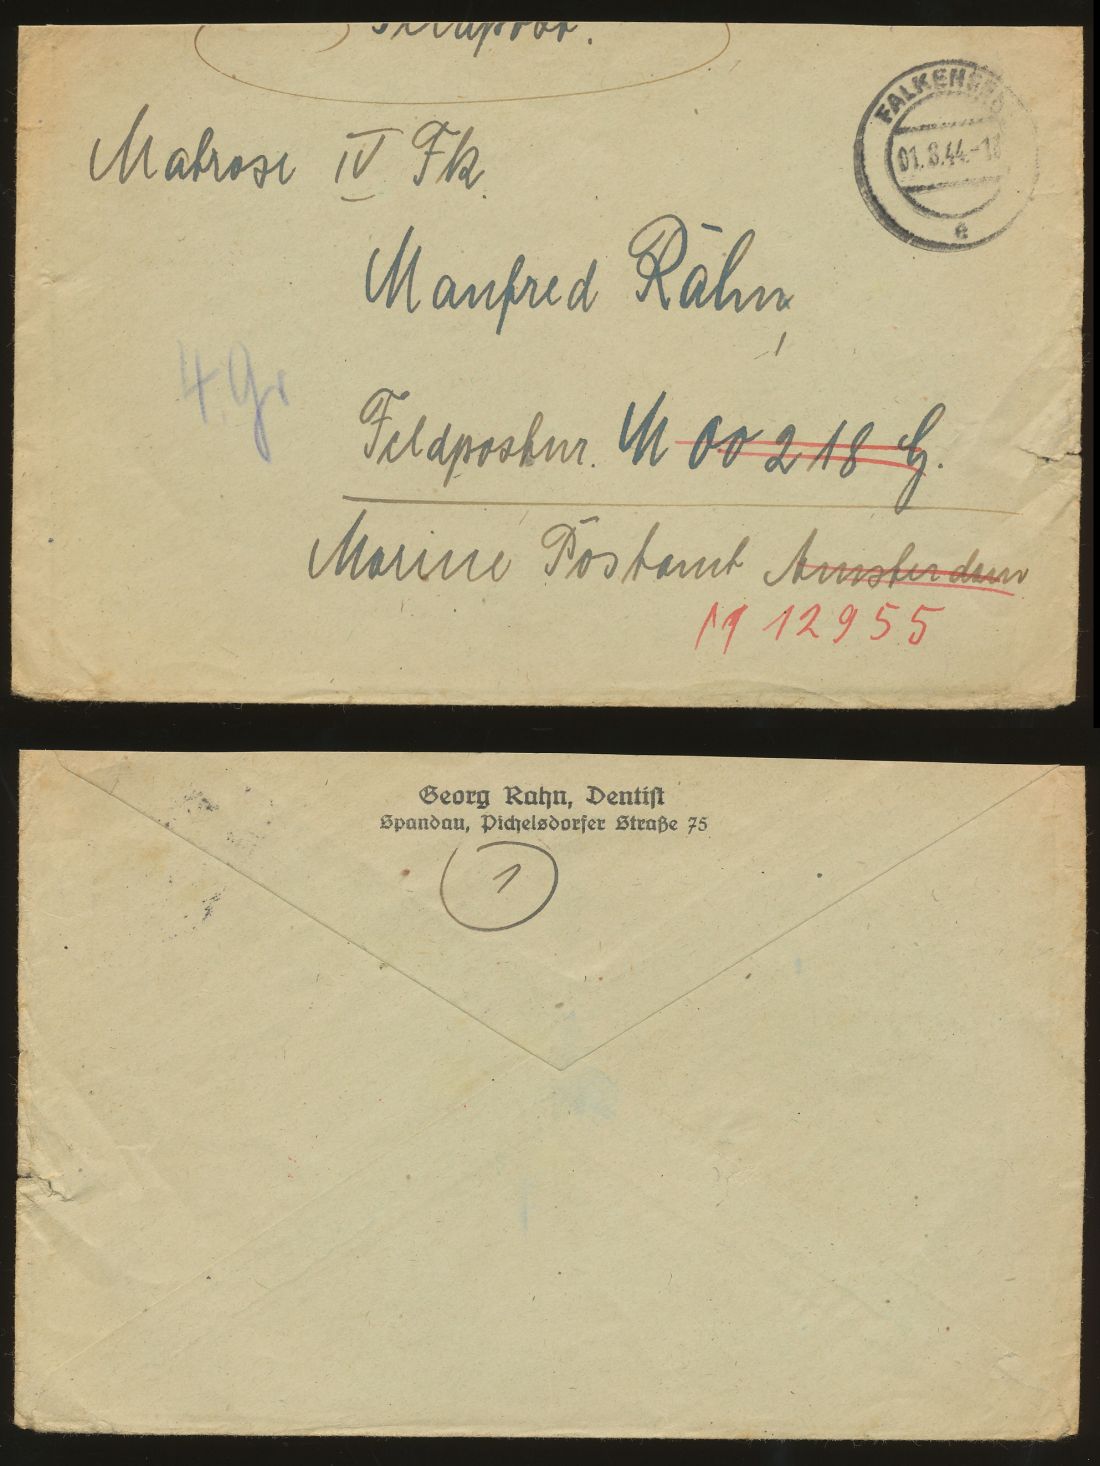 Feldpost.
FALKENSEE
01.8.44.-18
e
Matrose IV Fk.
Manfred Rahn,
4. Gr.
Feldpostnr. M 00218 G.
Marine Postamt Amsterdam
M 12955
Georg Rahn, Dentist
Spandau, Pichelsdorfer Straße 75
1